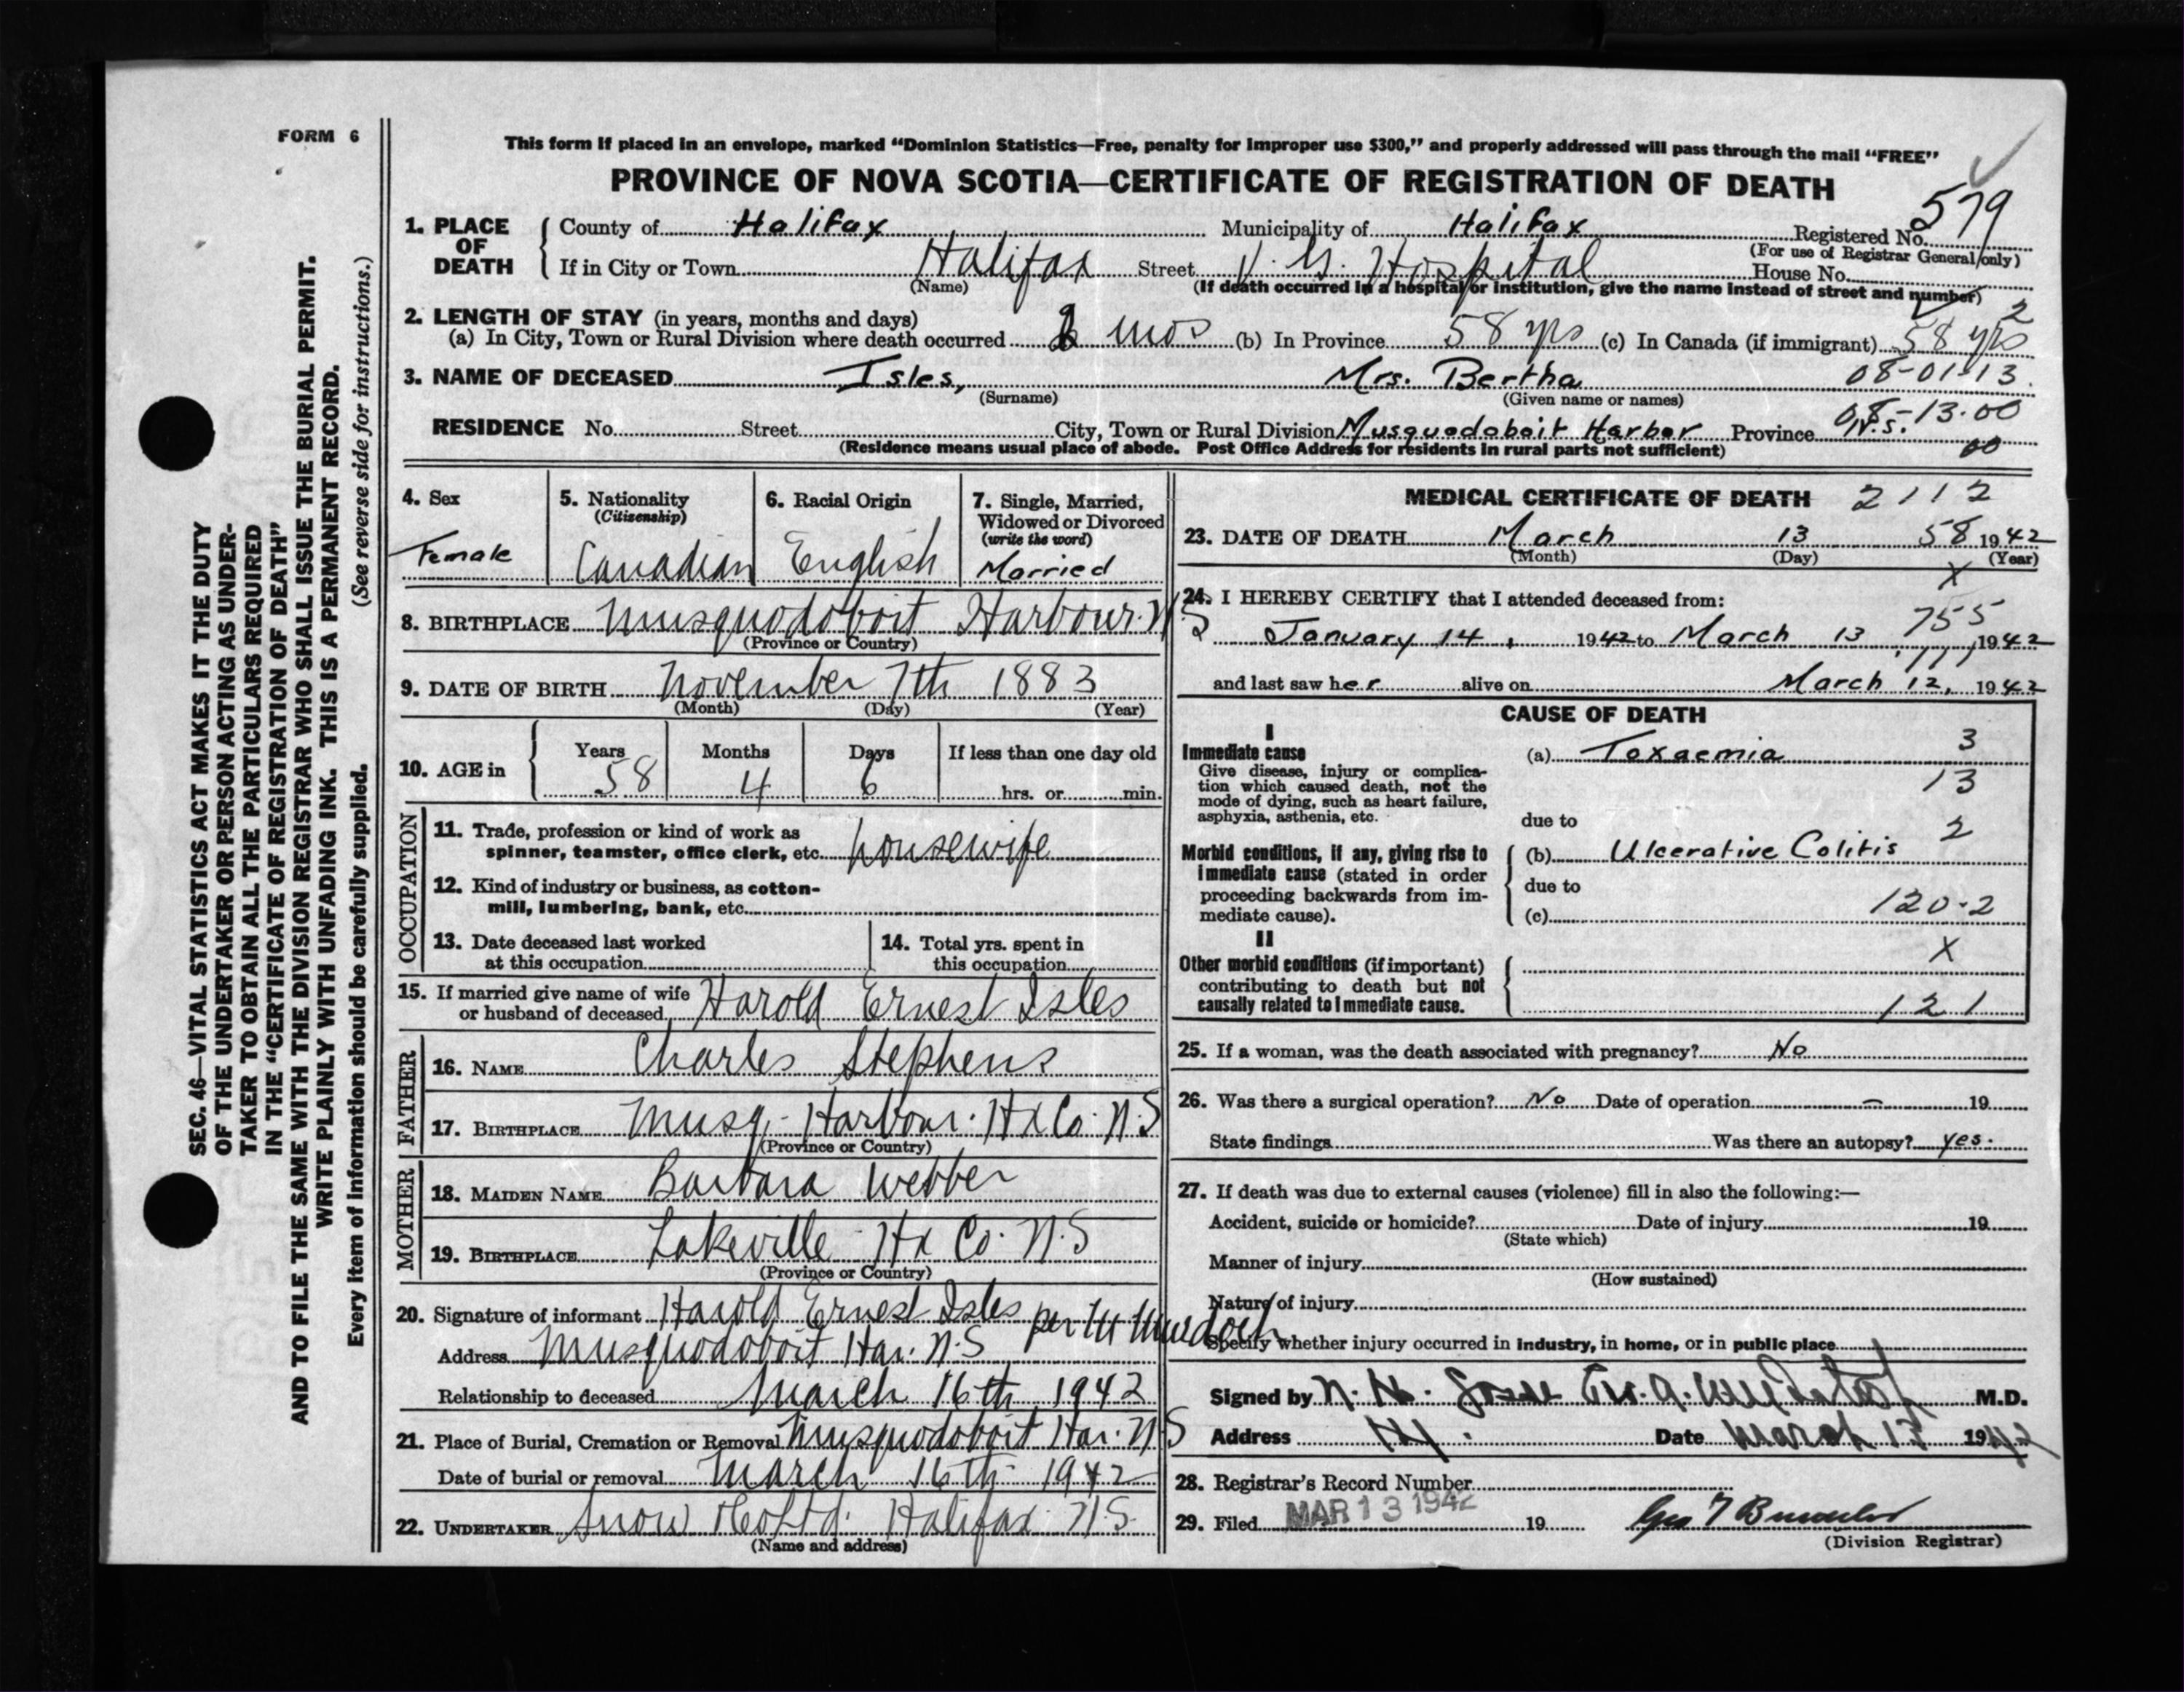 FORM 6
This form if placed in an envelope, marked “Dominion Statistics—Free, penalty for improper use $300,” and properly addressed will pass through the mail “FREE”
PROVINCE OF NOVA SCOTIA—CERTIFICATE OF REGISTRATION OF DEATH
579
1. PLACE OF DEATH
County of Halifax Municipality of Halifax Registered No.
(For use of Registrar General only)
If in City or Town Halifax Street V. G. Hospital House No.
(Name) (If death occurred in a hospital or institution, give the name instead of street and number)
2
2. LENGTH OF STAY (in years, months and days)
(a) In City, Town or Rural Division where death occurred 2 mos (b) In Province 58 yrs (c) In Canada (if immigrant) 58 yrs
3. NAME OF DECEASED Isles, Mrs. Bertha 08-01-13
(Surname) (Given name or names)
08-13.00
RESIDENCE No. Street City, Town or Rural Division Musquodoboit Harbor Province N.S.
(Residence means usual place of abode. Post Office Address for residents in rural parts not sufficient) 00
4. Sex
Female
5. Nationality
(Citizenship)
Canadian
6. Racial Origin
English
7. Single, Married,
Widowed or Divorced
(write the word)
Married
8. BIRTHPLACE Musquodoboit Harbour. N S
(Province or Country)
9. DATE OF BIRTH November 7th 1883
(Month) (Day) (Year)
10. AGE in
Years Months Days If less than one day old
58 4 6 hrs. or min.
OCCUPATION
11. Trade, profession or kind of work as
spinner, teamster, office clerk, etc. housewife
12. Kind of industry or business, as cotton-
mill, lumbering, bank, etc.
13. Date deceased last worked
at this occupation
14. Total yrs. spent in
this occupation
15. If married give name of wife
or husband of deceased Harold Ernest Isles
FATHER
16. NAME Charles Stephens
17. BIRTHPLACE Musq. Harbour. Hx Co. N.S
(Province or Country)
MOTHER
18. MAIDEN NAME Barbara Webber
19. BIRTHPLACE Lakeville Hx Co. N.S
(Province or Country)
20. Signature of informant Harold Ernest Isles per M Murdoch
Address Musquodoboit Har. N.S
Relationship to deceased March 16th 1942
21. Place of Burial, Cremation or Removal Musquodoboit Har. N S
Date of burial or removal March 16th 1942
22. UNDERTAKER Snow & Co Ltd. Halifax N.S.
(Name and address)
MEDICAL CERTIFICATE OF DEATH 2112
23. DATE OF DEATH March 13 58 1942
(Month) (Day) (Year)
X
24. I HEREBY CERTIFY that I attended deceased from:
755
January 14, 1942 to March 13 1942
111
and last saw her alive on March 12, 1942
CAUSE OF DEATH
I
Immediate cause
Give disease, injury or complica-
tion which caused death, not the
mode of dying, such as heart failure,
asphyxia, asthenia, etc.
(a) Toxaemia 3
13
due to
2
Morbid conditions, if any, giving rise to
immediate cause (stated in order
proceeding backwards from im-
mediate cause).
(b) Ulcerative Colitis
due to
(c) 120-2
II
Other morbid conditions (if important)
contributing to death but not
causally related to immediate cause.
X
121
25. If a woman, was the death associated with pregnancy? No
26. Was there a surgical operation? No Date of operation — 19
State findings Was there an autopsy? yes.
27. If death was due to external causes (violence) fill in also the following:—
Accident, suicide or homicide? Date of injury 19
(State which)
Manner of injury
(How sustained)
Nature of injury
Specify whether injury occurred in industry, in home, or in public place
Signed by N. H. M.D.
Address Date March 13 1942
28. Registrar's Record Number
29. Filed MAR 13 1942 19
(Division Registrar)
SEC. 46—VITAL STATISTICS ACT MAKES IT THE DUTY
OF THE UNDERTAKER OR PERSON ACTING AS UNDER-
TAKER TO OBTAIN ALL THE PARTICULARS REQUIRED
IN THE “CERTIFICATE OF REGISTRATION OF DEATH”
AND TO FILE THE SAME WITH THE DIVISION REGISTRAR WHO SHALL ISSUE THE BURIAL PERMIT.
WRITE PLAINLY WITH UNFADING INK. THIS IS A PERMANENT RECORD.
Every item of information should be carefully supplied. (See reverse side for instructions.)